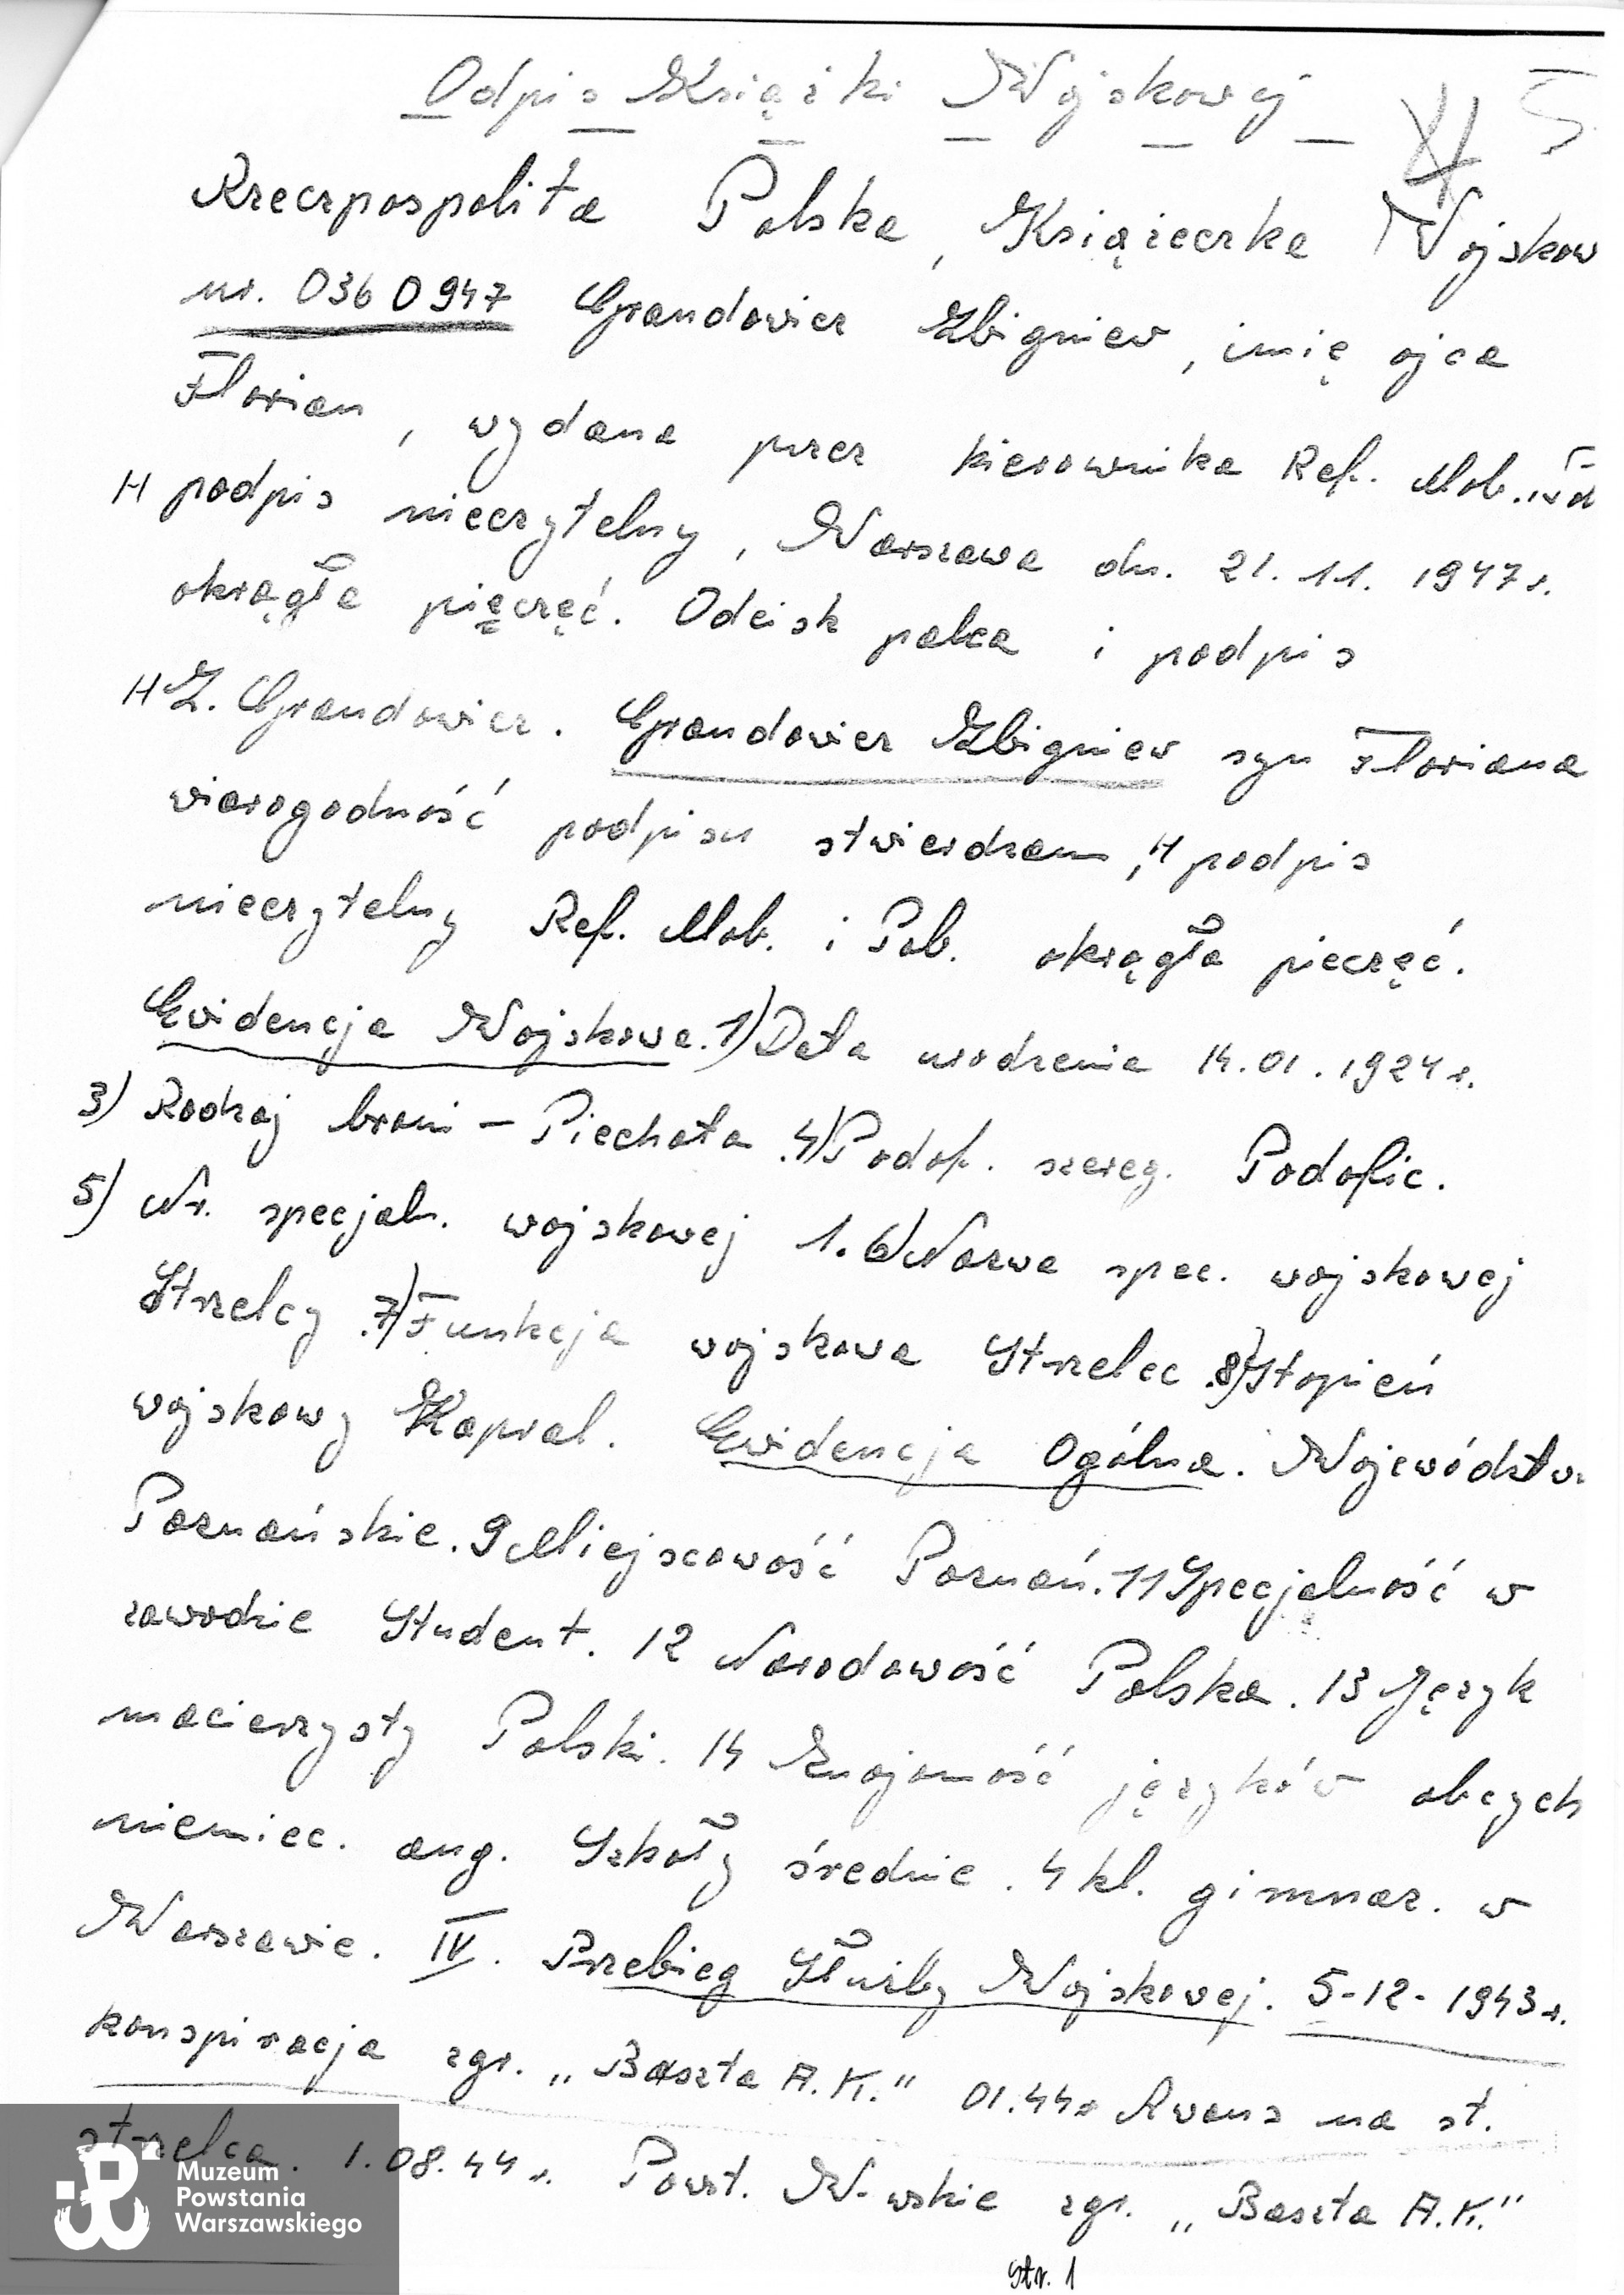 Odpis Książki Wojskowej
Rzeczpospolita Polska, Książeczka Wojskow
nr. 0360947 Grandowicz Zbigniew, imię ojca
Florian, wydana przez kierownika Ref. Mob.
H podpis nieczytelny, Warszawa dn. 21.11.1947r.
okrągła pięczęć. Odcisk palca i podpis
H Z. Grandowicz. Grandowicz Zbigniew syn Floriana
wiarogodność podpisu stwierdzam, H podpis
nieczytelny Ref. Mob. i Pob. okrągła pieczęć.
Ewidencja Wojskowa. 1) Data urodzenia 14.01.1924r.
3) Rodzaj broni – Piechota. 4) Podof. szereg. Podofic.
5) Nr. specjaln. wojskowej 1. 6) Nazwa spec. wojskowej
Strzelcy. 7) Funkcja wojskowa Strzelec. 8) Stopień
wojskowy Kapral. Ewidencja Ogólna. Województw.
Poznańskie. 9 Miejscowość Poznań. 11 Specjalność w
zawodzie Student. 12 Narodowość Polska. 13 Język
macierzysty Polski. 14 Znajomość języków obcych
niemiec. ang. Szkoły średnie. 4 kl. gimnaz. w
Warszawie. IV. Przebieg Służby Wojskowej. 5-12-1943r.
konspiracja zgr. „Baszta A.K." 01.44r Awans na st.
strzelca. 1.08.44r. Powst. W-wskie zgr. „Baszta A.K."
Str. 1
Muzeum
Powstania
Warszawskiego